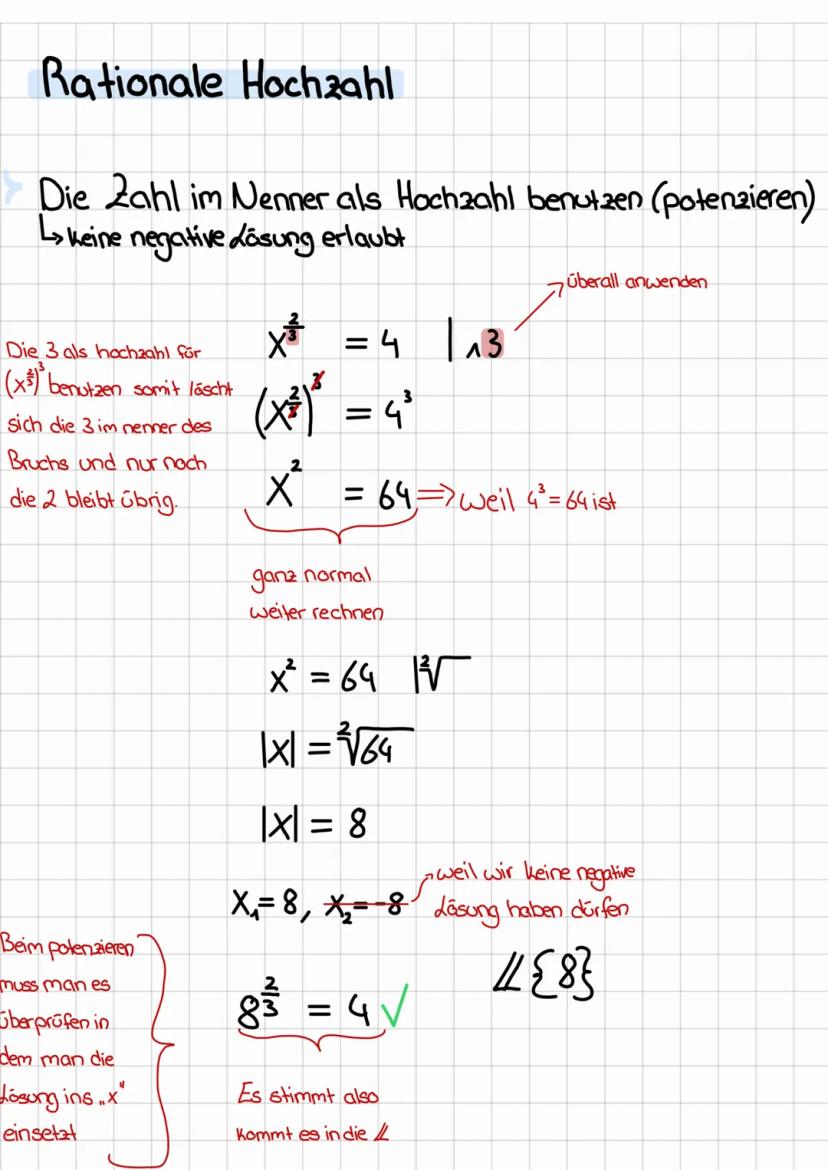 Rationale Hochzahl
Die Zahl im Nenner als Hochzahl benutzen (potenzieren)
↳ keine negative Lösung erlaubt
überall anwenden
x^(2/3) = 4 | ^3
Die 3 als hochzahl für
(x^(2/3))^3 benutzen somit löscht
sich die 3 im nenner des
Bruchs und nur noch
die 2 bleibt übrig.
(x^(2/3))^3 = 4^3
x^2 = 64 ⇒ weil 4^3 = 64 ist
ganz normal
weiter rechnen
x^2 = 64 | ²√
|x| = ²√64
|x| = 8
x₁ = 8, x₂ = -8
weil wir keine negative
Lösung haben dürfen
𝕃{8}
Beim potenzieren
muss man es
überprüfen in
dem man die
Lösung ins „x"
einsetzt
8^(2/3) = 4 ✓
Es stimmt also
kommt es in die 𝕃